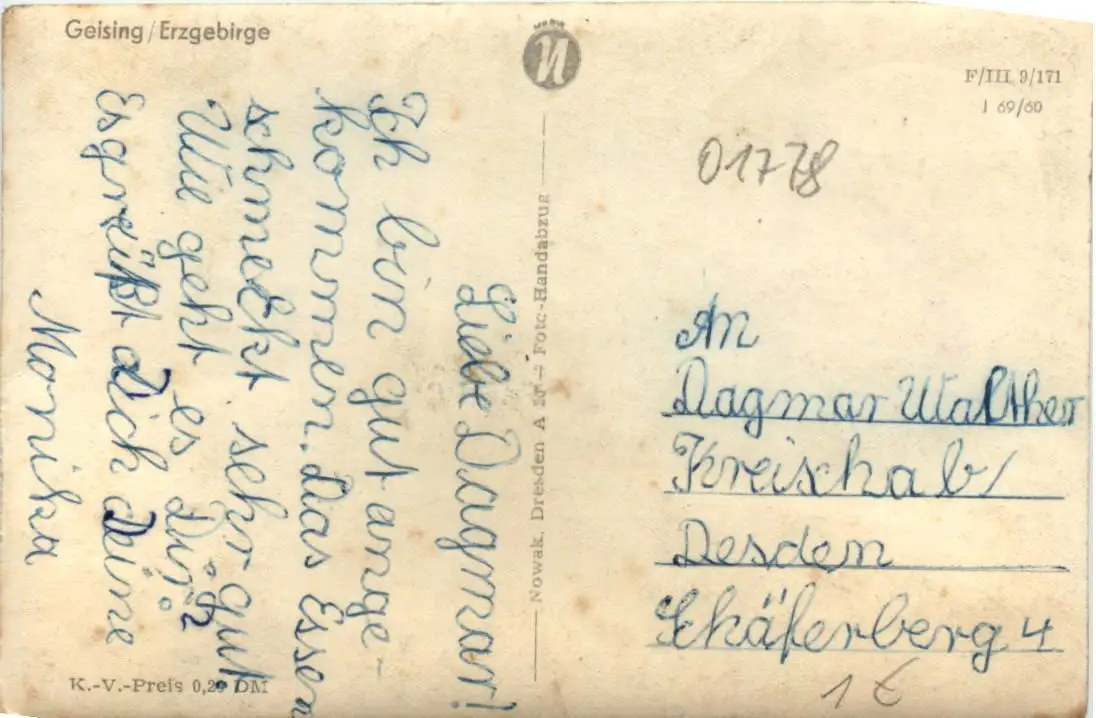 Geising/Erzgebirge
Liebe Dagmar!
Ich bin gut ange-
kommen. Das Essen
schmeckt sehr gut.
Wie geht es Dir?
Es grüßt Dich Deine
Monika
K.-V.-Preis 0,20 DM
Nowak, Dresden A 27 — Foto-Handabzug
F/III 9/171
I 69/60
01778
An
Dagmar Walther
Kreischa b/
Desden
Schäferberg 4
1 €